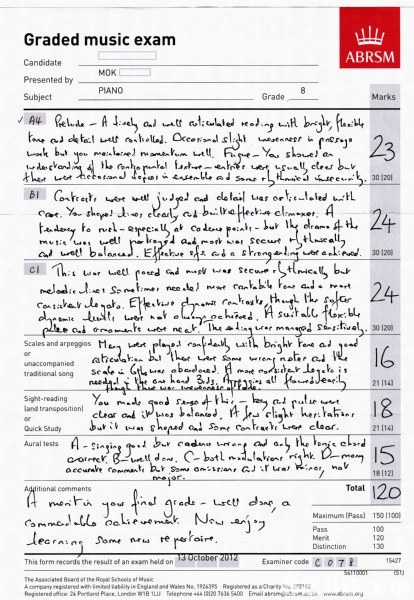 Graded music exam
ABRSM
Candidate
Presented by MOK
Subject PIANO Grade 8 Marks
✓ A4 Prelude - A lively and well articulated reading with bright, flexible
tone and detail well controlled. Occasional slight unevenness in passage
work but you maintained momentum well. Fugue - You showed an
understanding of the contrapuntal texture - entries were usually clear but
there were occasional slips in ensemble and some rhythmical insecurity.
23
30 (20)
B1 Contrasts were well judged and detail was articulated with
care. You shaped lines clearly and built effective climaxes. A
tendency to rush - especially at cadence points - but the drama of the
music was well portrayed and most was secure rhythmically
and well balanced. Effective sfs and a strong ending were achieved.
24
30 (20)
C1 This was well paced and most was secure rhythmically but
melodic lines sometimes needed more cantabile tone and a more
consistent legato. Effective dynamic contrasts, though the softer
dynamic levels were not always achieved. A suitable flexible
pulse and ornaments were neat. The ending was managed sensitively.
24
30 (20)
Scales and arpeggios
or
unaccompanied
traditional song
Many were played confidently with bright tone and good
articulation but there were some wrong notes and the
scale in 6ths was abandoned. A more consistent legato is
needed in the one hand 3rds. Arpeggios all flowed clearly
though there was unevenness of tone.
16
21 (14)
Sight-reading
(and transposition)
or
Quick Study
You made good sense of this - key and pulse were
clear and it was balanced. A few slight hesitations
but it was shaped and some contrasts were clear.
18
21 (14)
Aural tests
A - Singing good but cadence wrong and only the tonic chord
correct. B - Well done. C - both modulations right. D - many
accurate comments but some omissions and it was minor, not
major.
15
18 (12)
Additional comments
Total 120
A merit in your final grade - well done, a
commendable achievement. Now enjoy
learning some new repertoire.
Maximum (Pass) 150 (100)
Pass 100
Merit 120
Distinction 130
This form records the result of an exam held on 13 October 2012 Examiner code C078 15427
54110001 (S1)
The Associated Board of the Royal Schools of Music
A company registered with limited liability in England and Wales No. 1926395 Registered as a Charity No. 292182
Registered office: 24 Portland Place, London W1B 1LU Telephone +44 (0)20 7636 5400 Email abrsm@abrsm.ac.uk